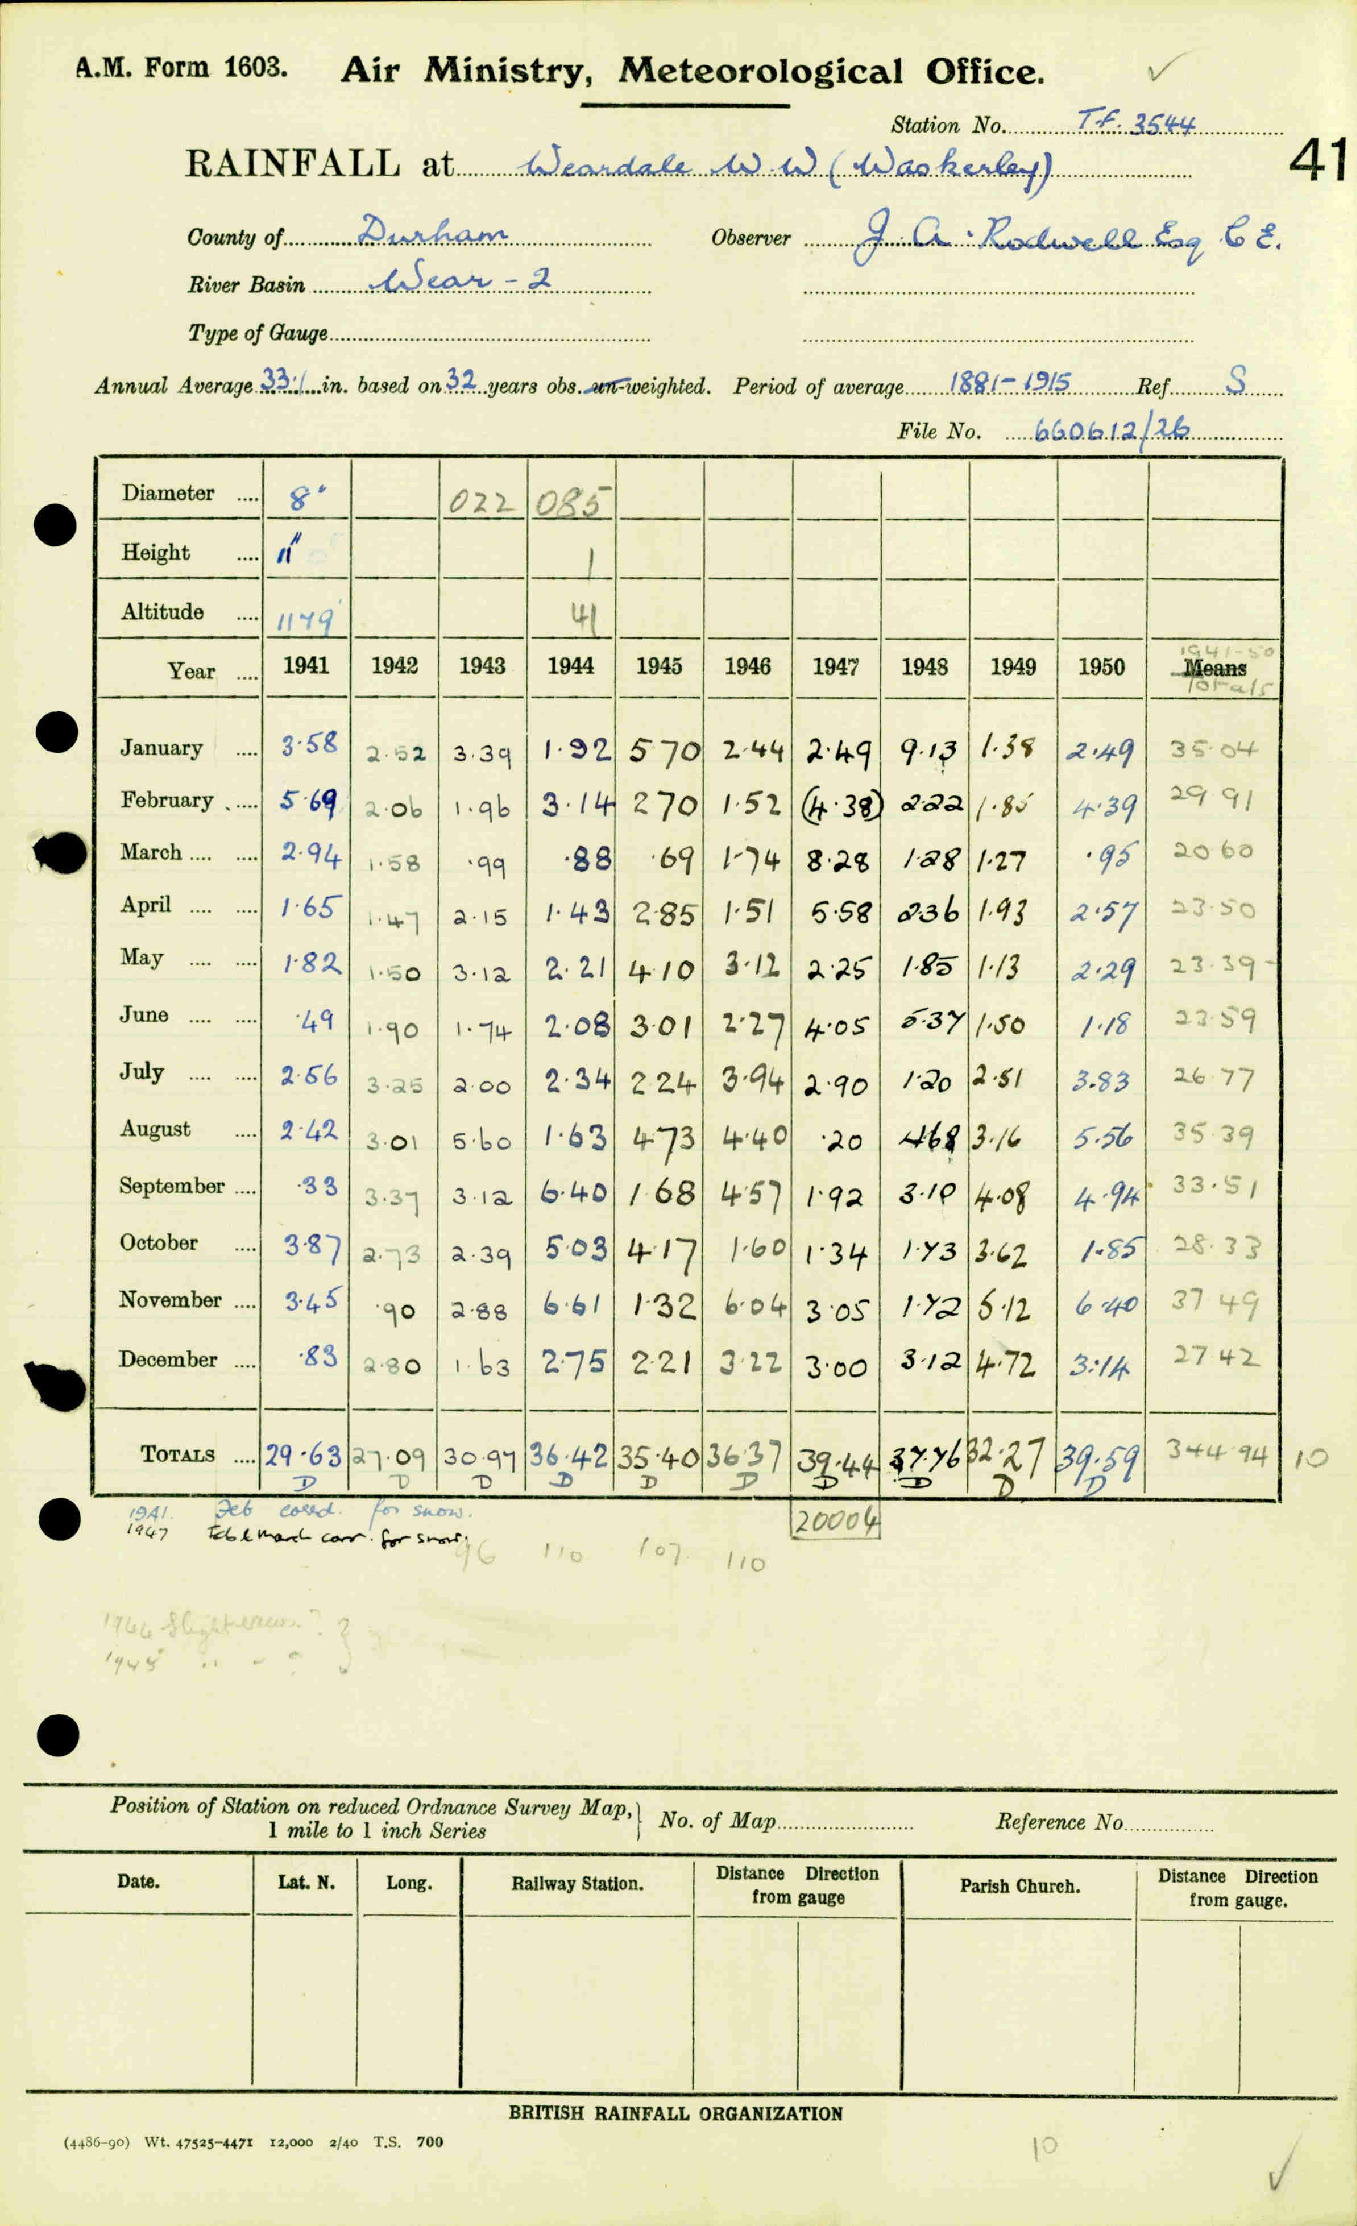 A.M. Form 1603. Air Ministry, Meteorological Office. ✓
Station No. T.f. 3544
RAINFALL at Weardale W W (Waskerley) 41
County of Durham Observer J. A. Rodwell Esq C E.
River Basin Wear - 2
Type of Gauge
Annual Average 33.1 in. based on 32 years obs. un-weighted. Period of average 1881-1915 Ref S
File No. 660612/26
Diameter .... 8" 022 085
Height .... 11" 1
Altitude .... 1179' 41
1941-50
Year .... 1941 1942 1943 1944 1945 1946 1947 1948 1949 1950 Means
Totals
January .... 3.58 2.52 3.39 1.92 5 70 2.44 2.49 9.13 1.38 2.49 35.04
February .... 5.69 2.06 1.96 3.14 2 70 1.52 (4.38) 2.22 1.85 4.39 29 91
March .... .... 2.94 1.58 .99 .88 .69 1.74 8.28 1.28 1.27 .95 20 60
April .... .... 1.65 1.47 2.15 1.43 2.85 1.51 5.58 2.36 1.93 2.57 23.50
May .... .... 1.82 1.50 3.12 2.21 4.10 3.12 2.25 1.85 1.13 2.29 23.39
June .... .... .49 1.90 1.74 2.08 3.01 2.27 4.05 5.37 1.50 1.18 23.59
July .... .... 2.56 3.25 2.00 2.34 2 24 3.94 2.90 1.20 2.51 3.83 26.77
August .... 2.42 3.01 5.60 1.63 4.73 4.40 .20 4.68 3.16 5.56 35.39
September .... .33 3.37 3.12 6.40 1.68 4.57 1.92 3.10 4.08 4.94 33.51
October .... 3.87 2.73 2.39 5.03 4.17 1.60 1.34 1.73 3.62 1.85 28.33
November .... 3.45 .90 2.88 6.61 1.32 6.04 3.05 1.72 5.12 6.40 37 49
December .... .83 2.80 1.63 2.75 2.21 3.22 3.00 3.12 4.72 3.14 27 42
TOTALS .... 29.63 27.09 30.97 36.42 35.40 36.37 39.44 37.76 32.27 39.59 344 94 10
D D D D D D D D D D
1941. Feb corrd. for snow. 20004
1947 Feb & March corr. for snow.
96 110 107. 110
1944
1945
Position of Station on reduced Ordnance Survey Map, } No. of Map Reference No.
1 mile to 1 inch Series
Date. Lat. N. Long. Railway Station. Distance Direction from gauge Parish Church. Distance Direction from gauge.
BRITISH RAINFALL ORGANIZATION
(4486-90) Wt. 47525-4471 12,000 2/40 T.S. 700
10
✓